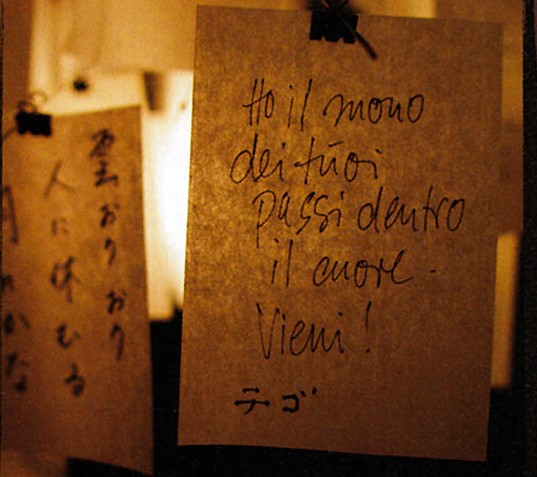 雲おりおり
人に休むる
月見かな
Ho il suono
dei tuoi
passi dentro
il cuore.
Vieni!
テゴ